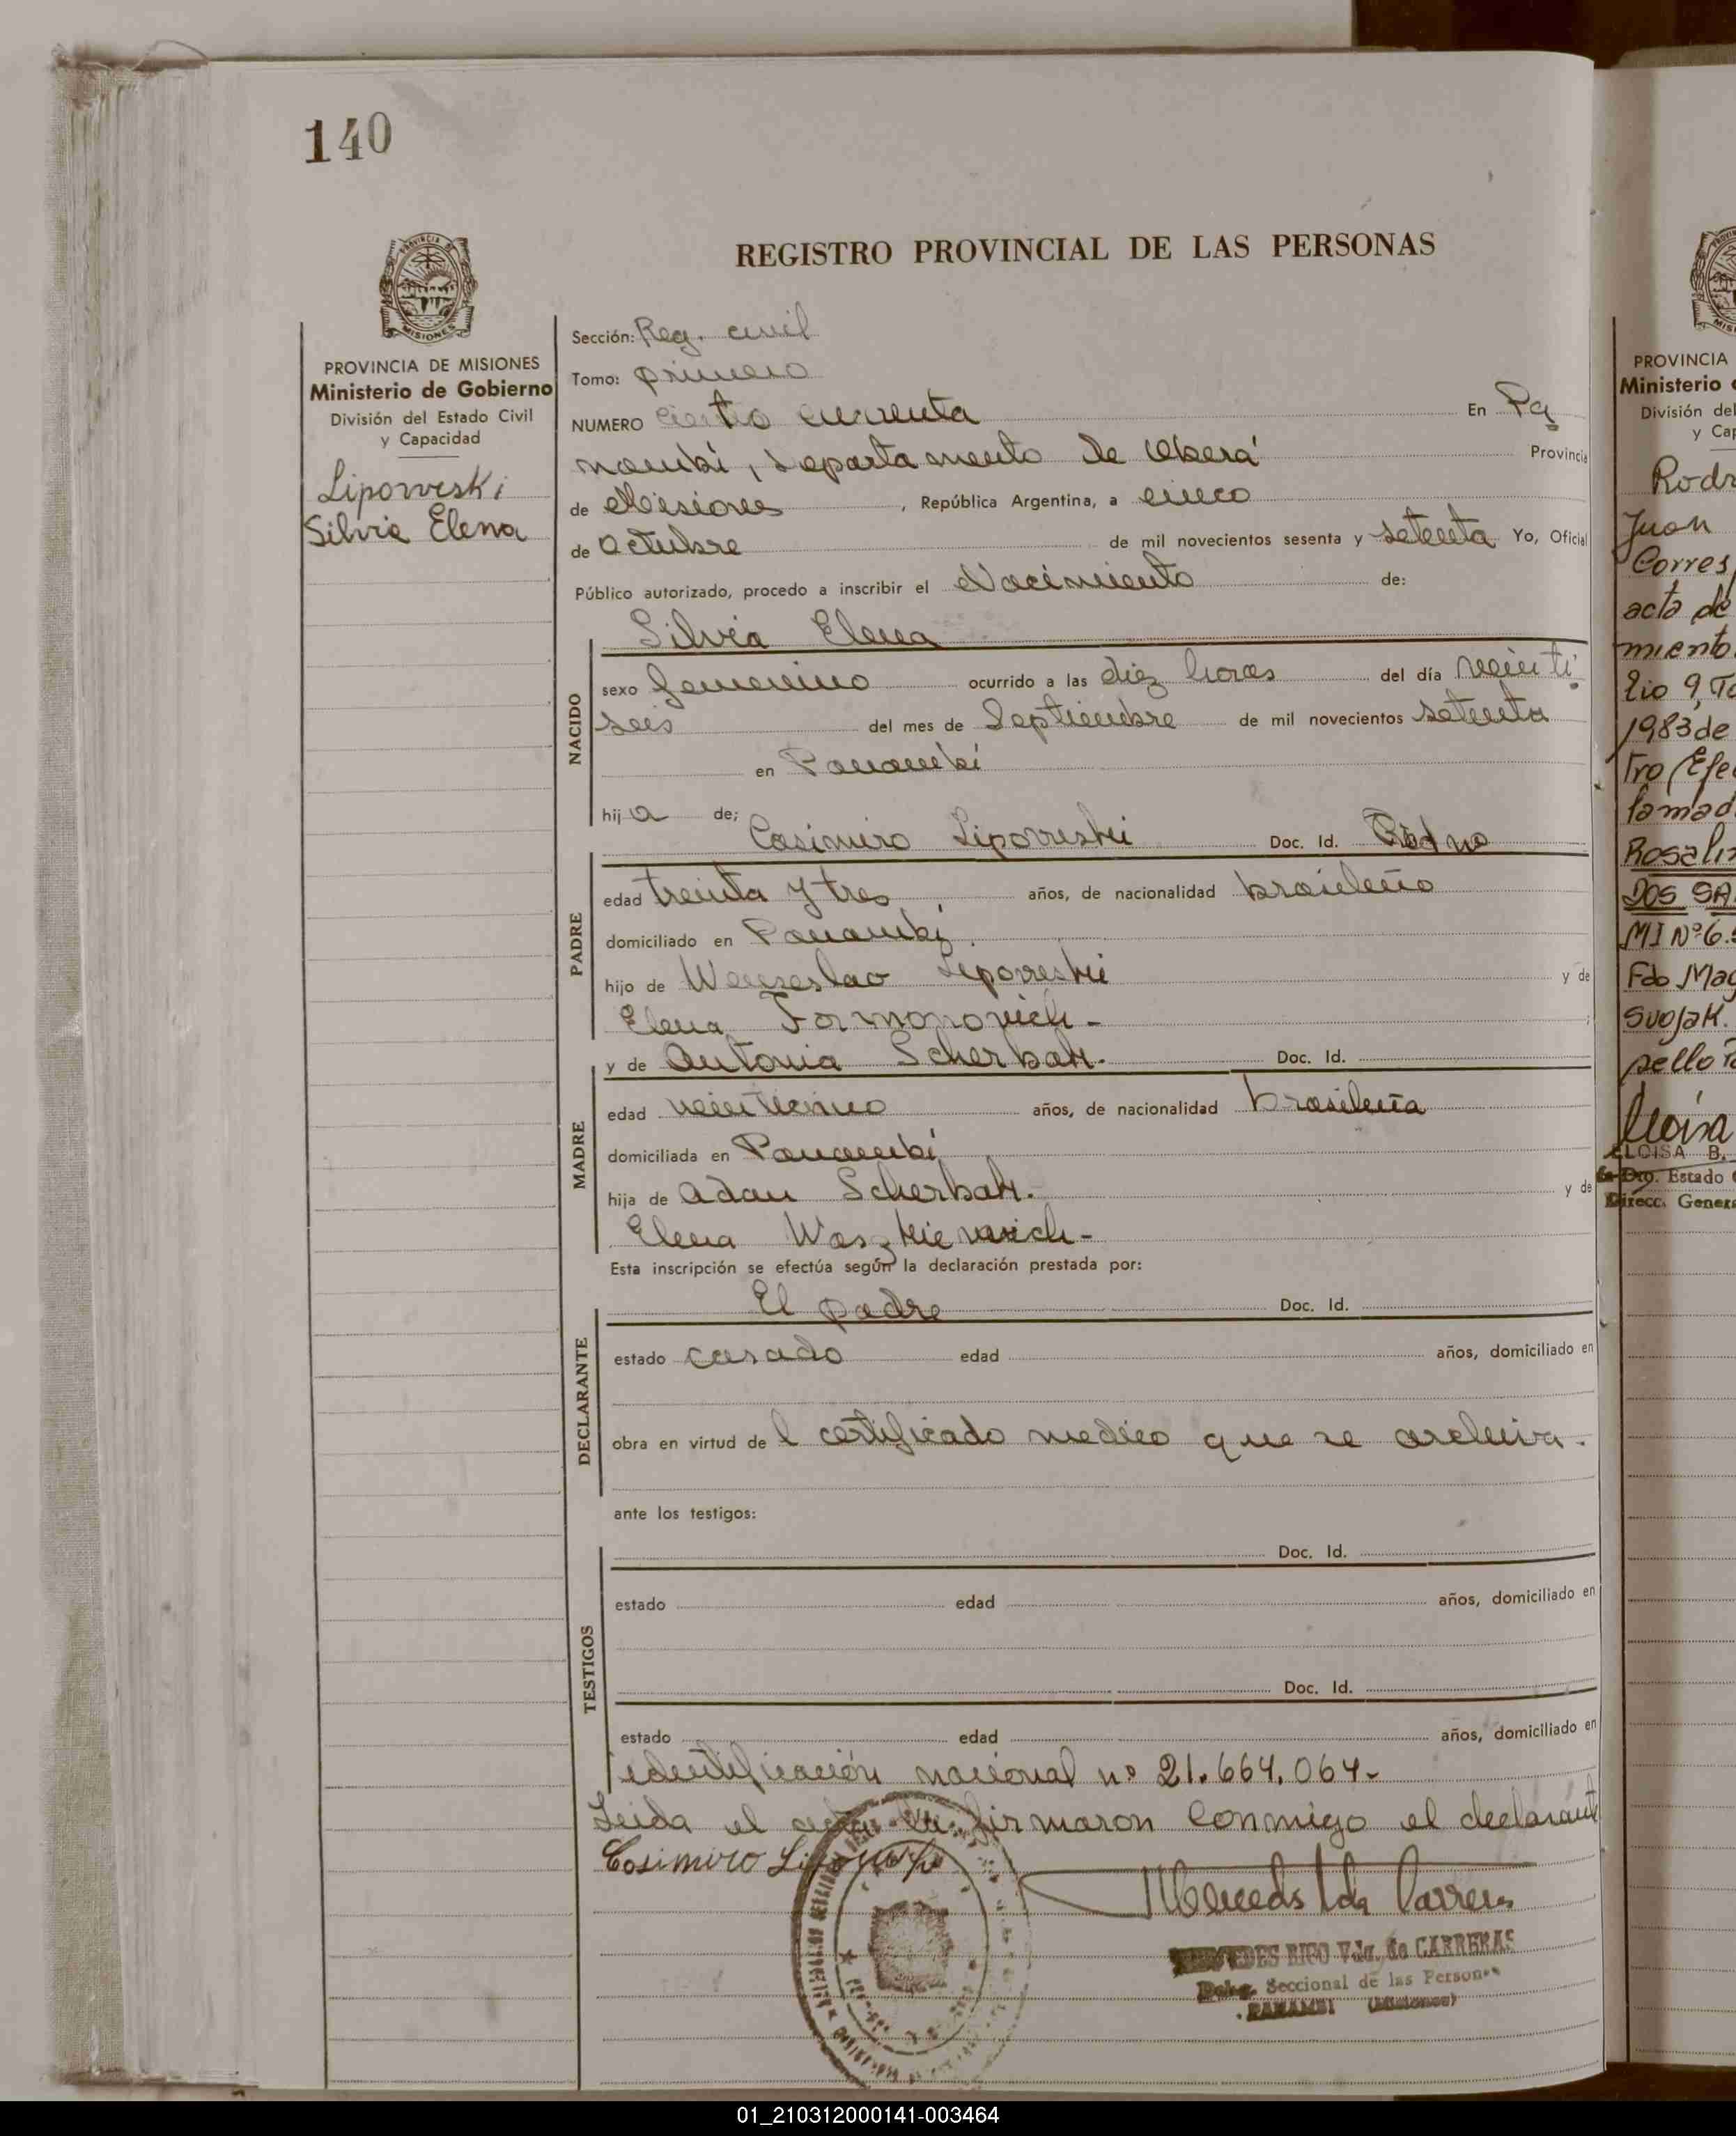 140
REGISTRO PROVINCIAL DE LAS PERSONAS
PROVINCIA DE MISIONES
Ministerio de Gobierno
División del Estado Civil
y Capacidad
Lipowski
Silvia Elena
Sección: Reg. civil
Tomo: primero
NUMERO ciento cuarenta En Pa
nambí, Departamento de Oberá Provincia
de Misiones, República Argentina, a cinco
de Octubre de mil novecientos sesenta y setenta Yo, Oficial
Público autorizado, procedo a inscribir el Nacimiento de:
Silvia Elena
NACIDO
sexo femenino ocurrido a las diez horas del día veinti
seis del mes de Septiembre de mil novecientos setenta
en Panambí
hija de;
Casimiro Liporreski Doc. Id.
PADRE
edad treinta y tres años, de nacionalidad brasileño
domiciliado en Panambí.
hijo de Wenzeslao Liporreski y de
Elena
y de Antonia Scherbak. Doc. Id.
MADRE
edad veinticinco años, de nacionalidad brasileña
domiciliada en Panambí
hija de Adan Scherbak. y de
Elena
Esta inscripción se efectúa según la declaración prestada por:
El padre Doc. Id.
DECLARANTE
estado casado edad años, domiciliado en
obra en virtud del certificado medico que se archiva.
ante los testigos:
TESTIGOS
Doc. Id.
estado edad años, domiciliado en
Doc. Id.
estado edad años, domiciliado en
identificación nacional nº 21.664.064-
Leida el acta la firmaron conmigo el declarante
Casimiro
MERCEDES RICO Vda. de CARRERAS
Deleg. Seccional de las Personas
PANAMBI (Misiones)
PROVINCIA
Ministerio
División del
y Cap
Rodr
Juan
Corres
acta de
miento
lio 9, To
1983 de
tro (Efe
lamad
Rosali
DOS SA
MI Nº 6.
Fdo Mag
Svojak.
sello
ELOISA B.
Estado
Direcc. Genera
01_210312000141-003464